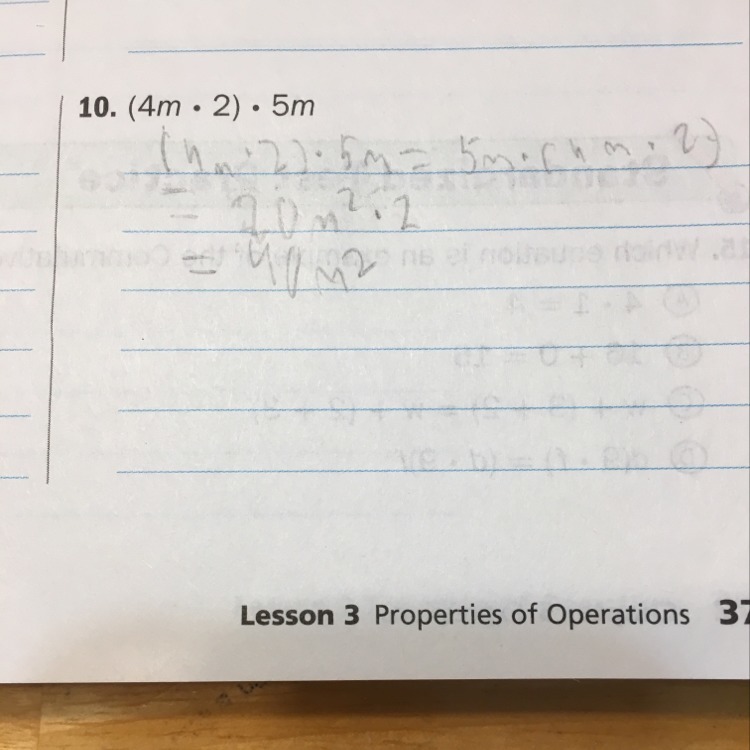 10. (4m • 2) • 5m
(4m · 2) · 5m = 5m · (4m · 2)
= 20m² · 2
= 40m²
Lesson 3 Properties of Operations 37